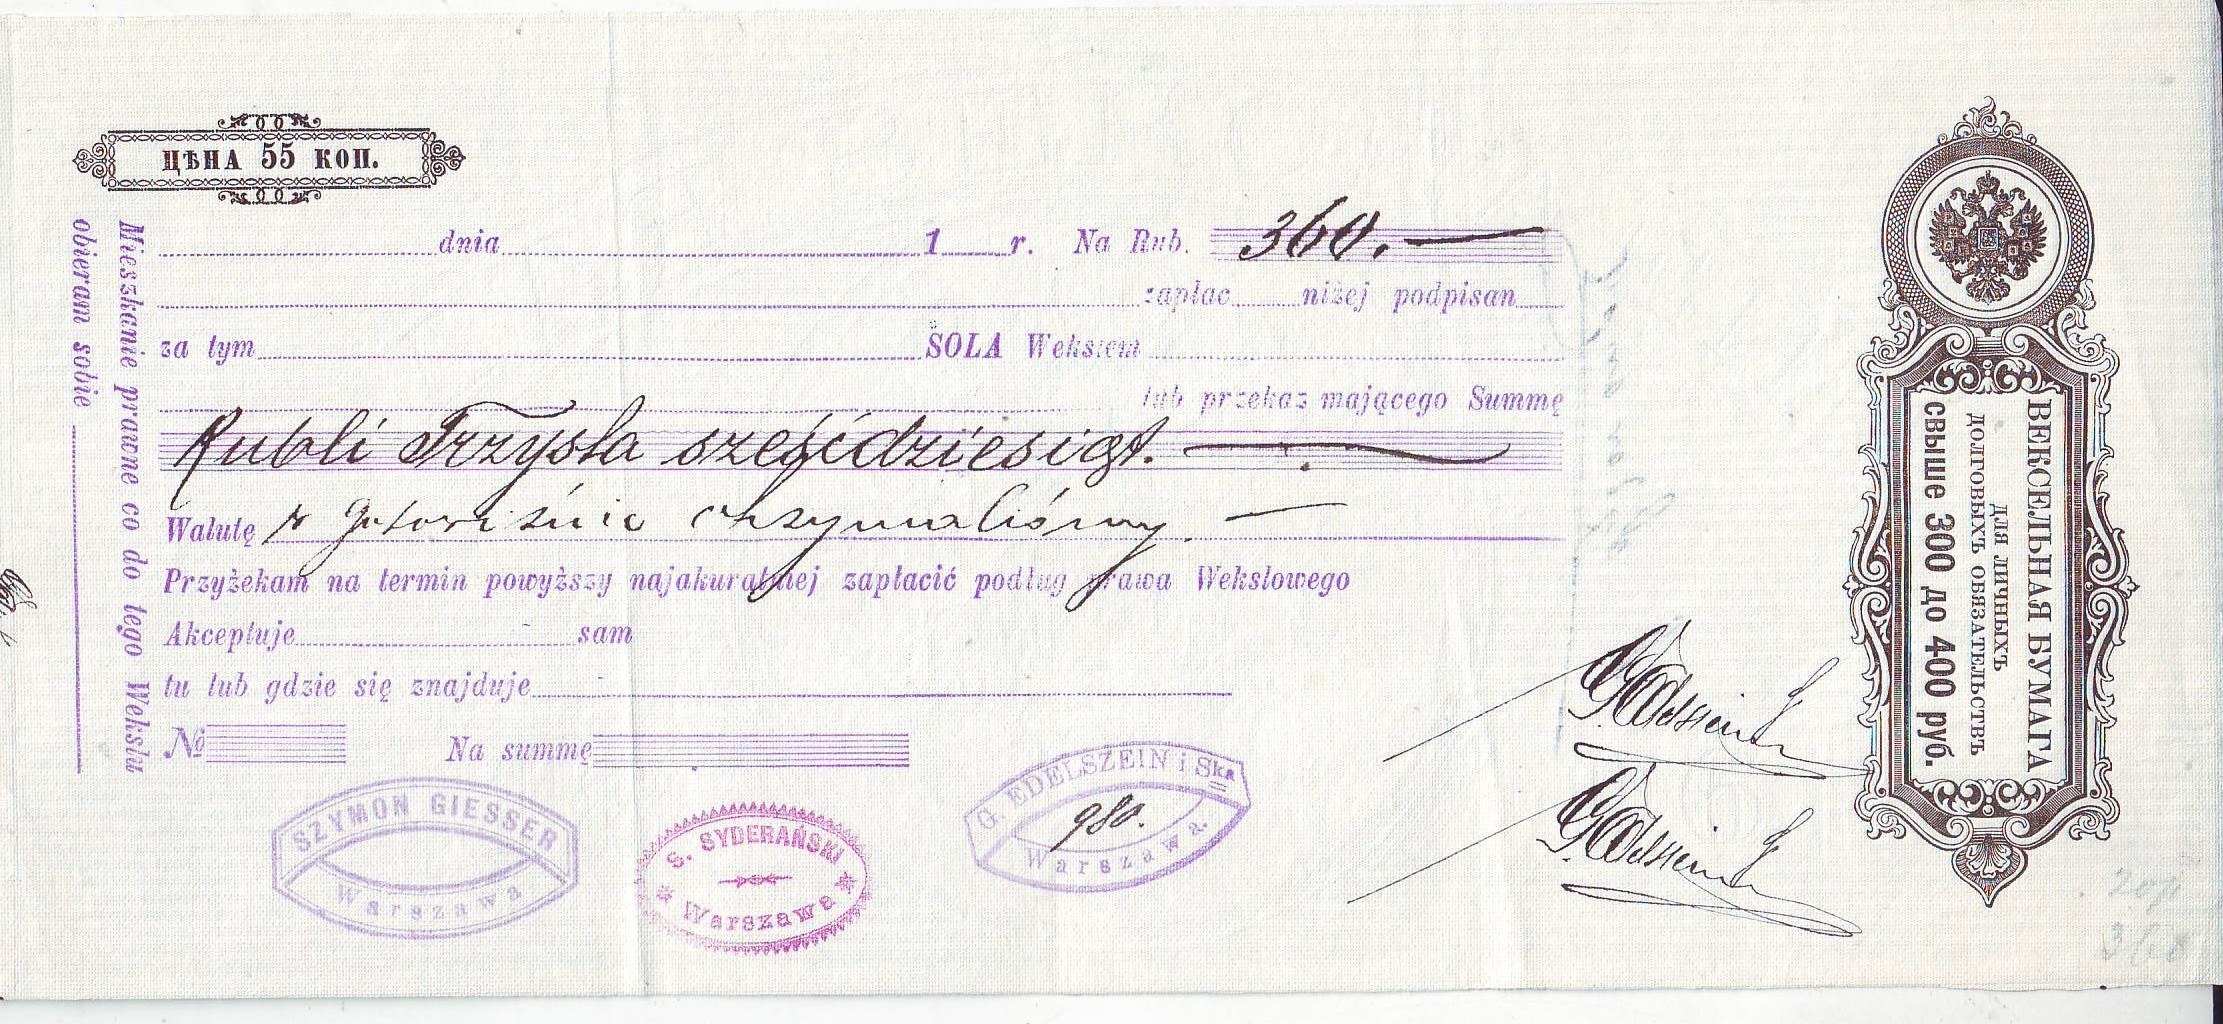 ЦѢНА 55 КОП.
dnia 1 r. Na Rub. 360.—
zapłac niżej podpisan
za tym SOLA Wekslem
lub przekaz mającego Summę
Rubli Trzysta sześćdziesiąt.—
Walutę w gotowiźnie otrzymaliśmy.—
Przyżekam na termin powyższy najakuratniej zapłacić podług prawa Wekslowego
Akceptuje sam
tu lub gdzie się znajduje
№ Na summę
Mieszkanie prawne co do tego Wekslu
obieram sobie
SZYMON GIESSER
Warszawa
S. SYDERAŃSKI
Warszawa
G. EDELSZEIN i Ska
980.
Warszawa.
ВЕКСЕЛЬНАЯ БУМАГА
ДЛЯ ЛИЧНЫХЪ
ДОЛГОВЫХЪ ОБЯЗАТЕЛЬСТВЪ
свыше 300 до 400 руб.
360